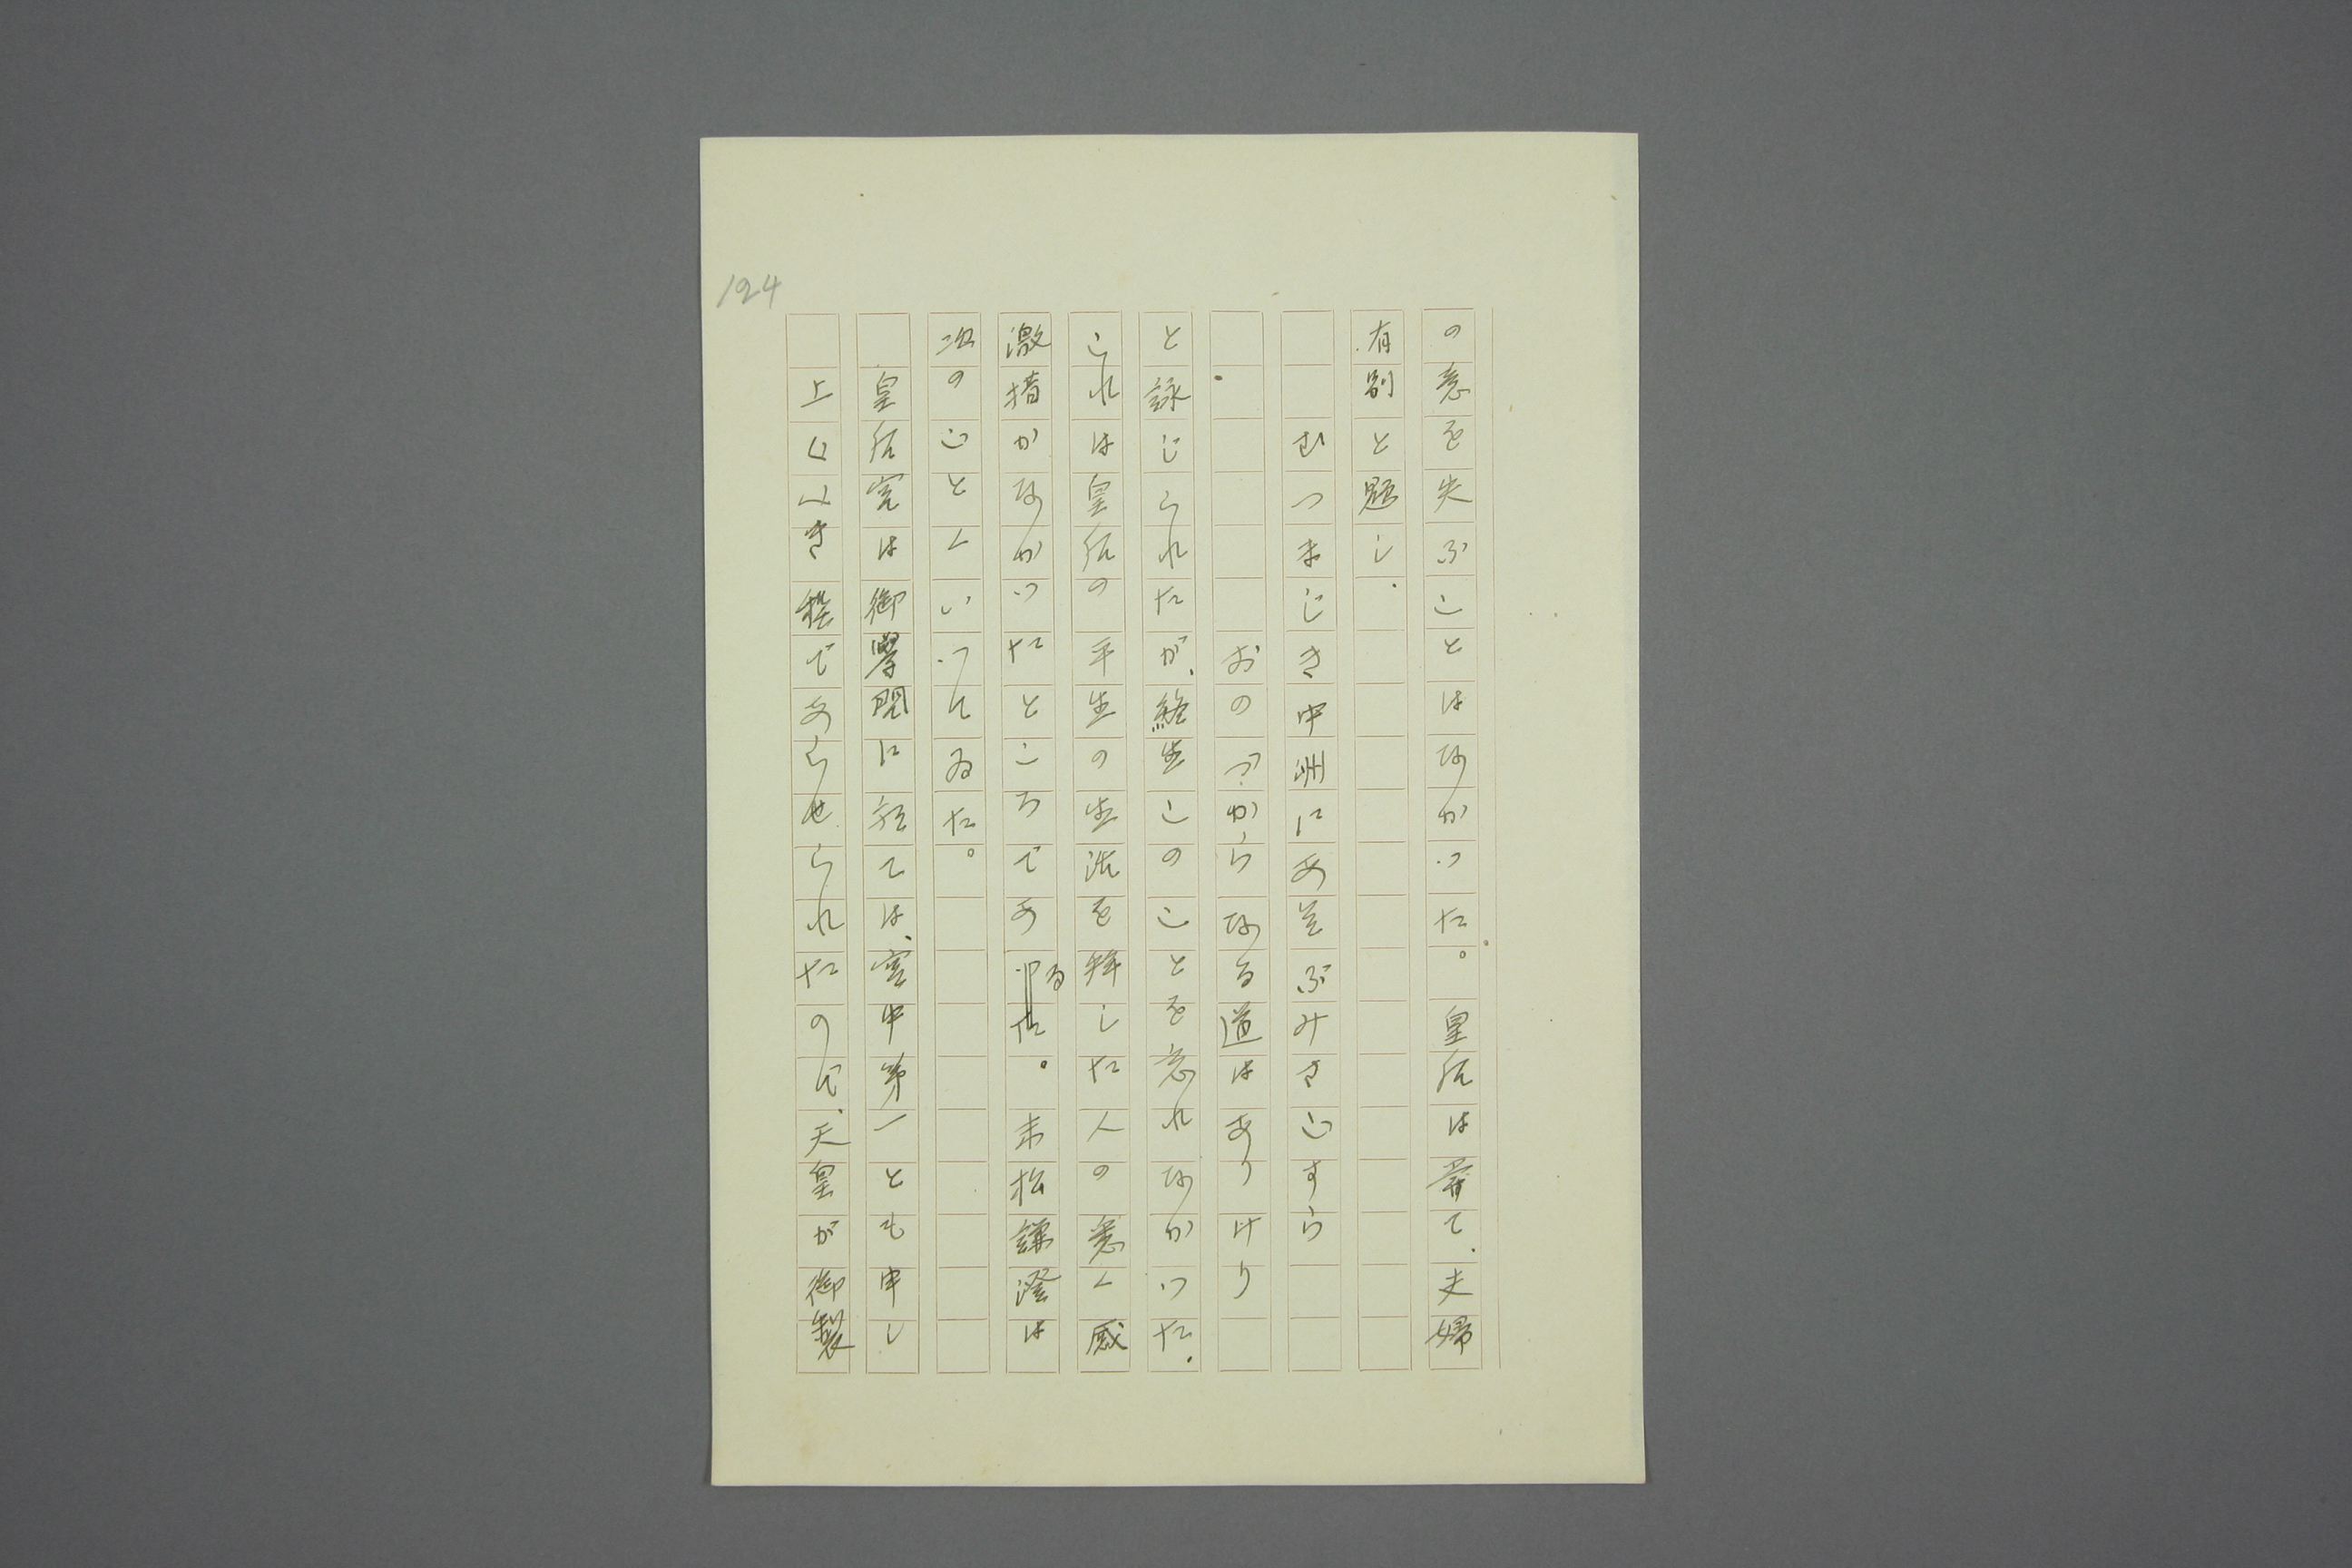 124
の意を失ふことはなかつた。皇后は嘗て、夫婦
有別と題し、
むつまじき中洲にあそぶみさごすら
おのづからなる道はありけり
と詠じられたが、終生このことを忘れなかつた。
これは皇后の平生の生活を拝した人の悉く感
激措かなかつたところである。末松謙澄は
次のごとくいつてゐた。
皇后宮は御學問に於ては、宮中第一とも申し
上ぐべき程であらせられたので、天皇が御製